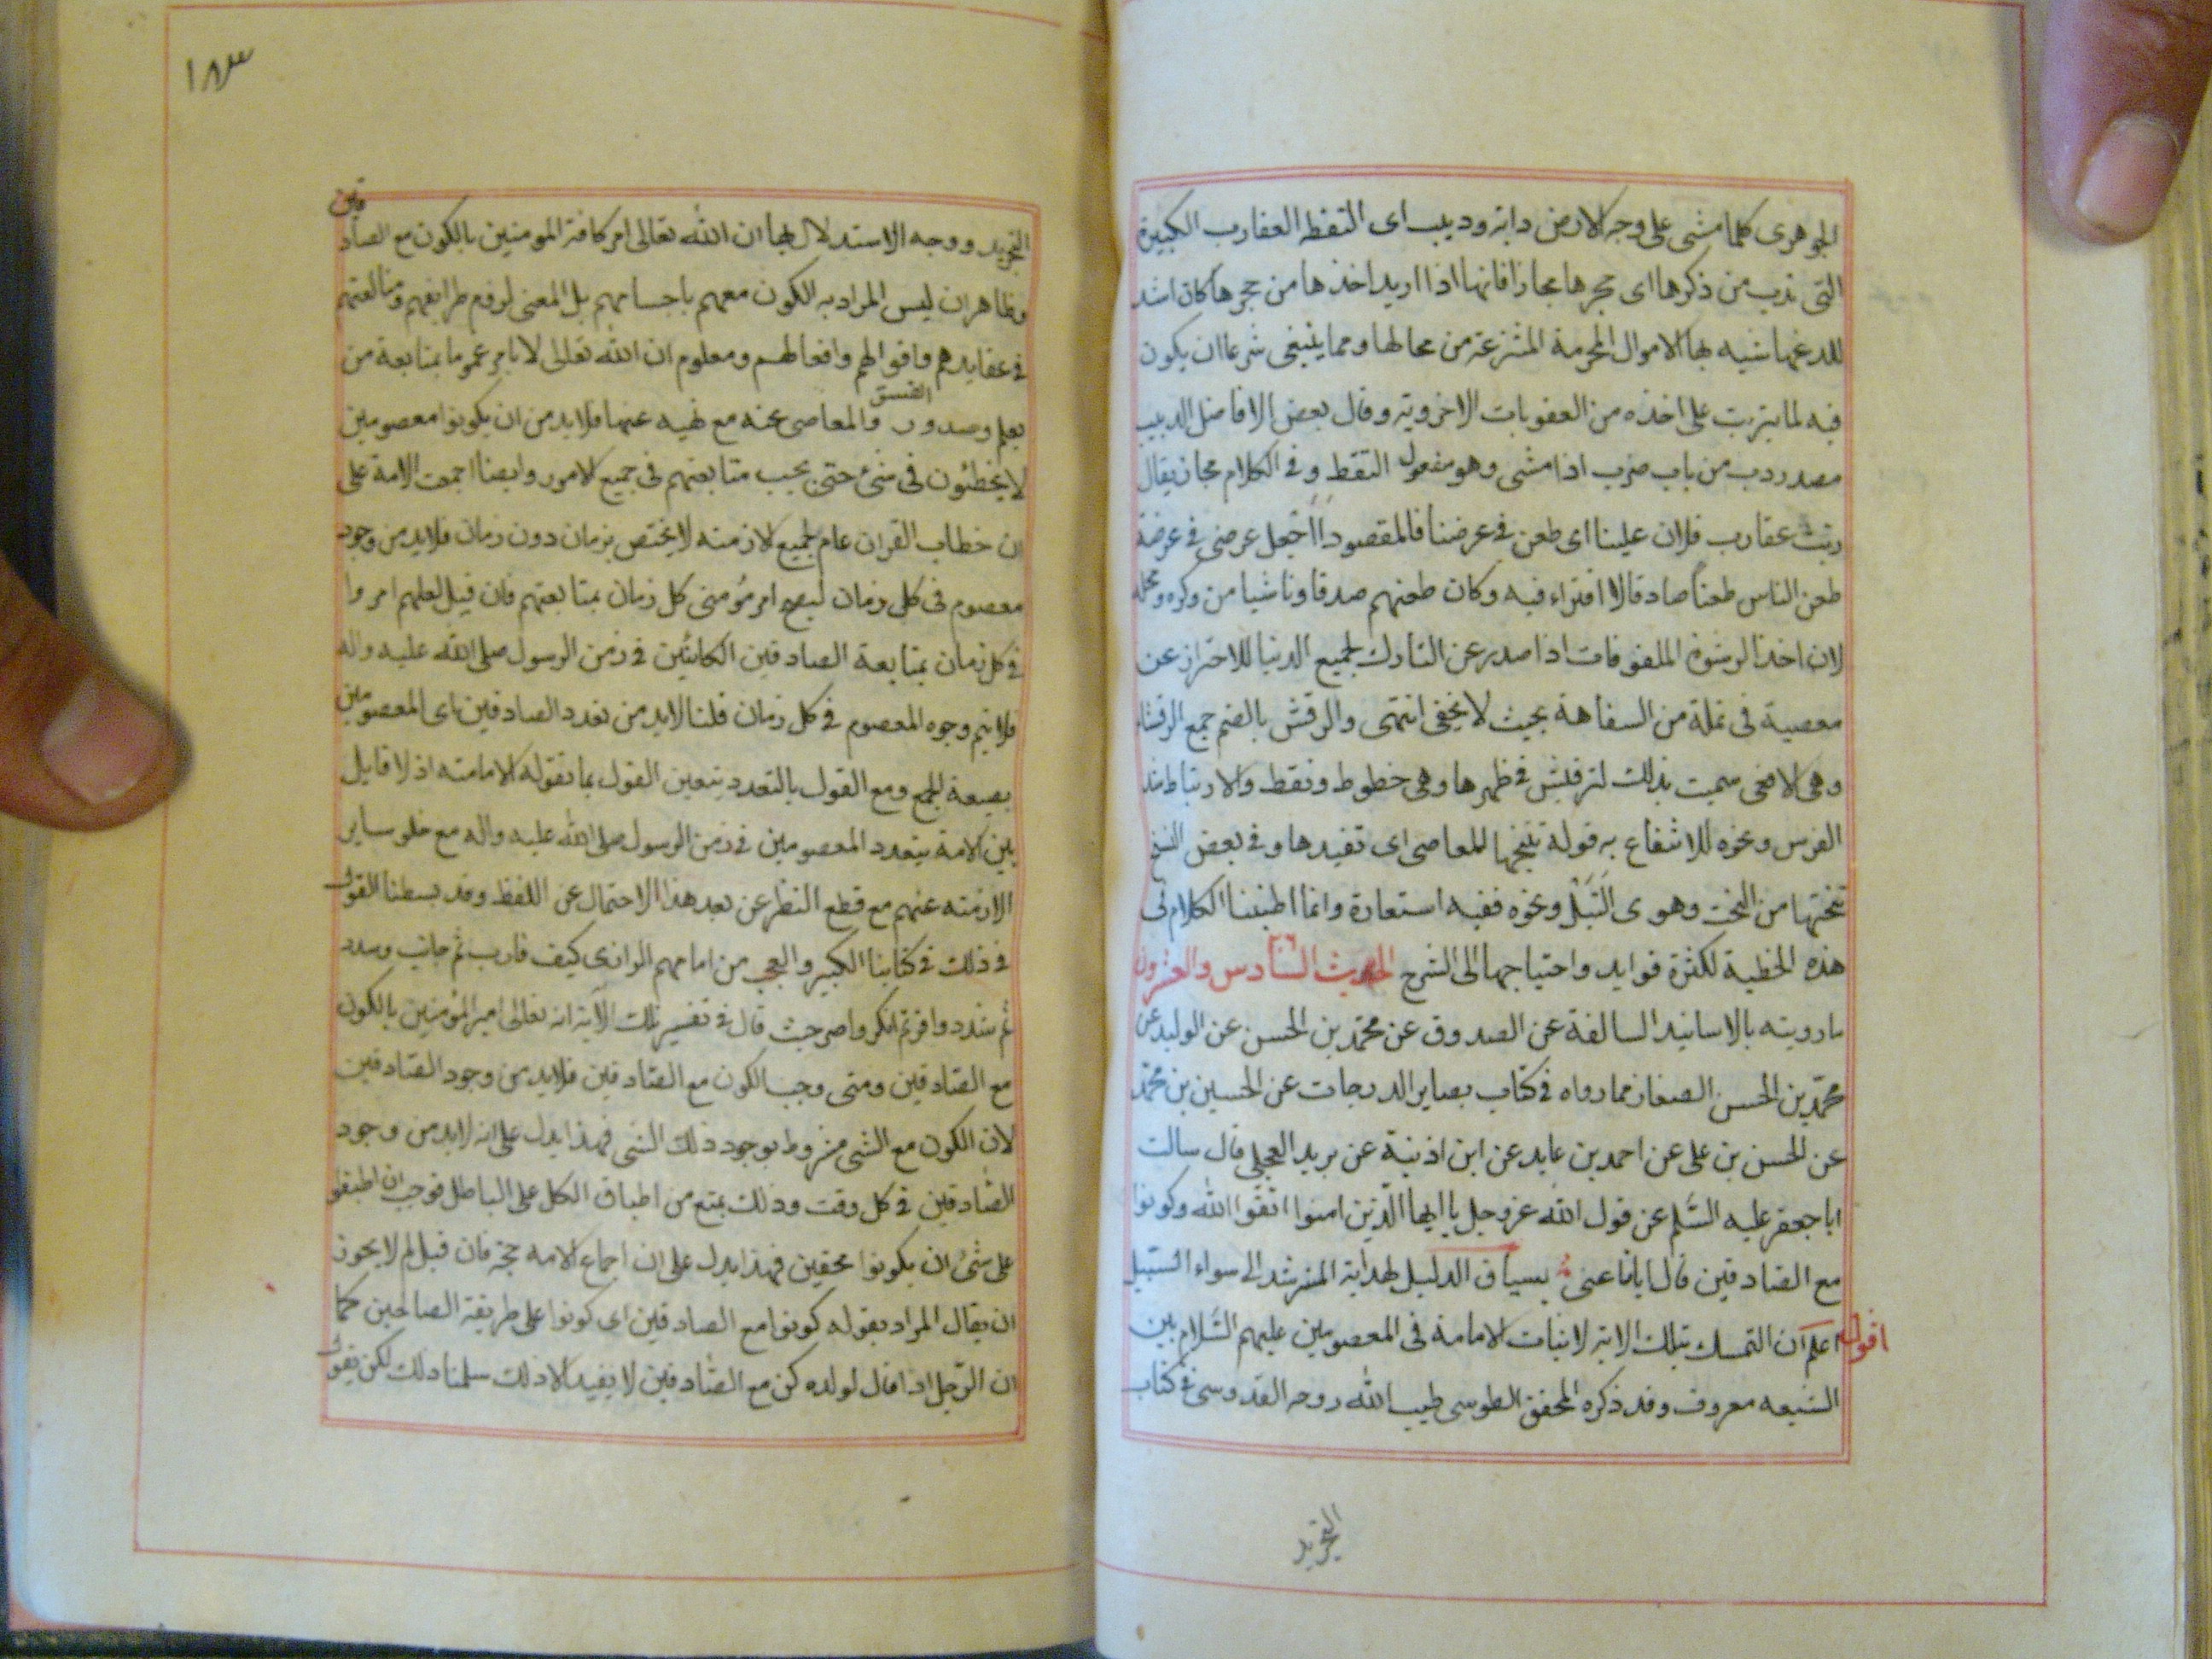 الجوهرى كلما مشى على وجه الارض دابة ودبيب اى التقط العقارب الكبيرة
التى تدب من ذكرها اى حجرها مجازا فانها اذا اريد اخذها من حجرها كان اشد
للدغها شبه بها الاموال المحرمة المنتزعة من محالها ومما ينبغى شرعا ان يكون
فيه لما يترتب على اخذه من العقوبات الاخروية وقال بعض الافاضل الدبيب
مصدر دب من باب ضرب اذا مشى وهو مفعول التقط وفى الكلام مجاز يقال
دبت عقارب فلان علينا اى طعن فى عرضنا فالمقصود اجعل عرضى فى عرضة
طعن الناس طعنا صادقا لا افتراء فيه وكان طعنهم صدقا وناشيا من وكره ومحله
لان اخذ الرشوة الملفوفات اذا صدر عن التارك لجميع الدنيا للاحتراز عن
معصية فى نملة من السفاهة بحيث لا يخفى انتهى والرقش بالضم جمع الرقشاء
وهى الافعى سميت بذلك لترقيش فى ظهرها وهى خطوط ونقط والارتباط شد
الفرس ونحوه للانتفاع به قوله تنتجها للمعاصى اى تفيدها وفى بعض النسخ
تنحتها من النحت وهو برى النبل ونحوه ففيه استعارة وانما اطنبنا الكلام فى
هذه الخطبة لكثرة فوايد واحتياجها الى الشرح الحديث السادس والعشرون
٢٦
ما رويته بالاسانيد السالفة عن الصدوق عن محمد بن الحسن عن الوليد عن
محمد بن الحسن الصفار مما رواه فى كتاب بصاير الدرجات عن الحسين بن محمد
عن الحسن بن على عن احمد بن عايد عن ابن اذينة عن بريد العجلى قال سالت
ابا جعفر عليه السلم عن قول الله عز وجل يا ايها الذين امنوا اتقوا الله وكونوا
مع الصادقين قال ايانا عنى بسياق الدليل لهداية المسترشد الى سواء السبيل
اقول اعلم ان التمسك بتلك الاية لاثبات الامامة فى المعصومين عليهم السلام بين
الشيعه معروف وقد ذكره المحقق الطوسى طيب الله روحه القدوسى فى كتاب
التجريد
١٨٣
التجريد ووجه الاستدلال بها ان الله تعالى امر كافة المومنين بالكون مع الصادقين
وظاهر ان ليس المراد به الكون معهم باجسامهم بل المعنى لزوم طرايقهم ومتابعتهم
فى عقايدهم واقوالهم وافعالهم ومعلوم ان الله تعالى لا يامر عموما بمتابعة من
يعلم صدور الفسق والمعاصى عنه مع نهيه عنها فلابد من ان يكونوا معصومين
لا يخطئون فى شئ حتى يجب متابعتهم فى جميع الامور وايضا اجمعت الامة على
ان خطاب القران عام لجميع الازمنه لا يختص بزمان دون زمان فلابد من وجود
معصوم فى كل زمان ليصح امر مؤمنى كل زمان بمتابعتهم فان قيل لعلهم امروا
فى كل زمان بمتابعة الصادقين الكاينين فى زمن الرسول صلى الله عليه واله
فلا يتم وجوه المعصوم فى كل زمان قلنا لابد من تعدد الصادقين اى المعصومين
بصيغة الجمع ومع القول بالتعدد يتعين القول بما تقوله الامامية اذ لا قايل
بين الامة بتعدد المعصومين فى زمن الرسول صلى الله عليه واله مع خلو ساير
الازمنه عنهم مع قطع النظر عن بعد هذا الاحتمال عن اللفظ وقد بسطنا القول
فى ذلك فى كتابنا الكبير والعجب من امامهم الرازى كيف قارب ثم جانب وسدد
ثم شدد واقر ثم انكر واصر حيث قال فى تفسير تلك الآية انه تعالى امر المؤمنين بالكون
مع الصادقين ومتى وجب الكون مع الصادقين فلابد من وجود الصادقين
لان الكون مع الشى مشروط بوجود ذلك الشى فهذا يدل على انه لابد من وجود
الصادقين فى كل وقت وذلك يمنع من اطباق الكل على الباطل فوجب ان اطبقوا
على شئ ان يكونوا محقين فهذا يدل على ان اجماع الامه حجة فان قيل لم لا يجوز
ان يقال المراد بقوله كونوا مع الصادقين اى كونوا على طريقة الصالحين كما
ان الرجل اذا قال لولده كن مع الصادقين لا يفيد الا ذلك سلمنا ذلك لكن يقول